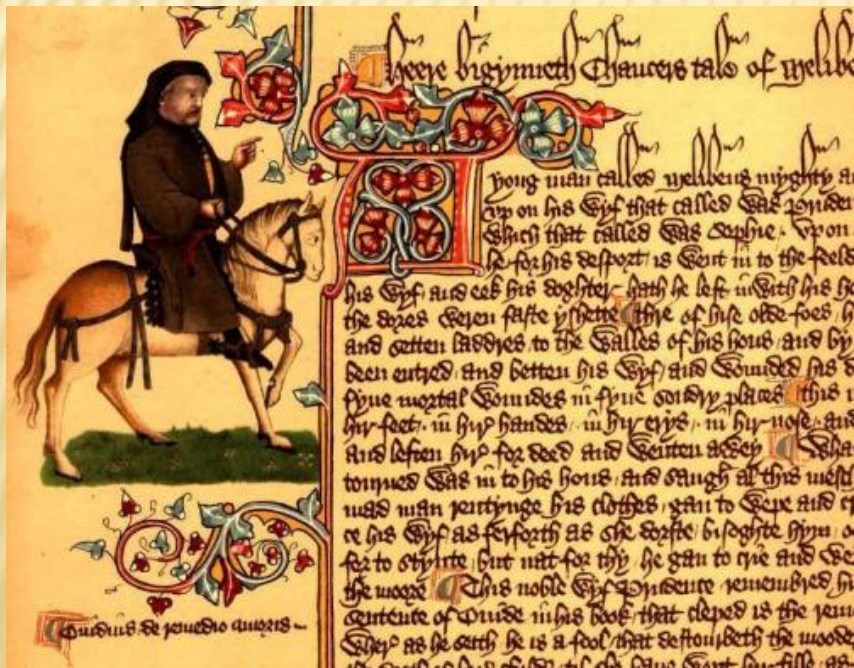 Heere bigynneth Chaucers tale of Melibe
A yong man called Melibeus myghty a
vp on his wyf that called was Pruden
which that called was Sophie. vpon
he for his desport is went in to the feeld
his wyf and eek his doghter hath he left inwith his h
the dores weren faste yshette thre of hise olde foes h
and setten laddres to the walles of his hous and by
been entred and betten his wyf and wounded his d
fyue mortal woundes in fyue sondry places this i
hir feet. in hir handes. in hir erys. in hir nose and
and leften hir for deed and wenten awey Wha
tourned was in to his hous and saugh al this mesch
mad man rentynge his clothes gan to wepe and c
ce his wyf as ferforth as she dorste bisoghte hym o
fer to stynte but nat for thy he gan to crie and we
the moore This noble wyf Prudence remembred hi
sentence of Ouide in his book that cleped is the rem
Wher as he seith he is a fool that destourbeth the mooder
Ouidius de remedio amoris